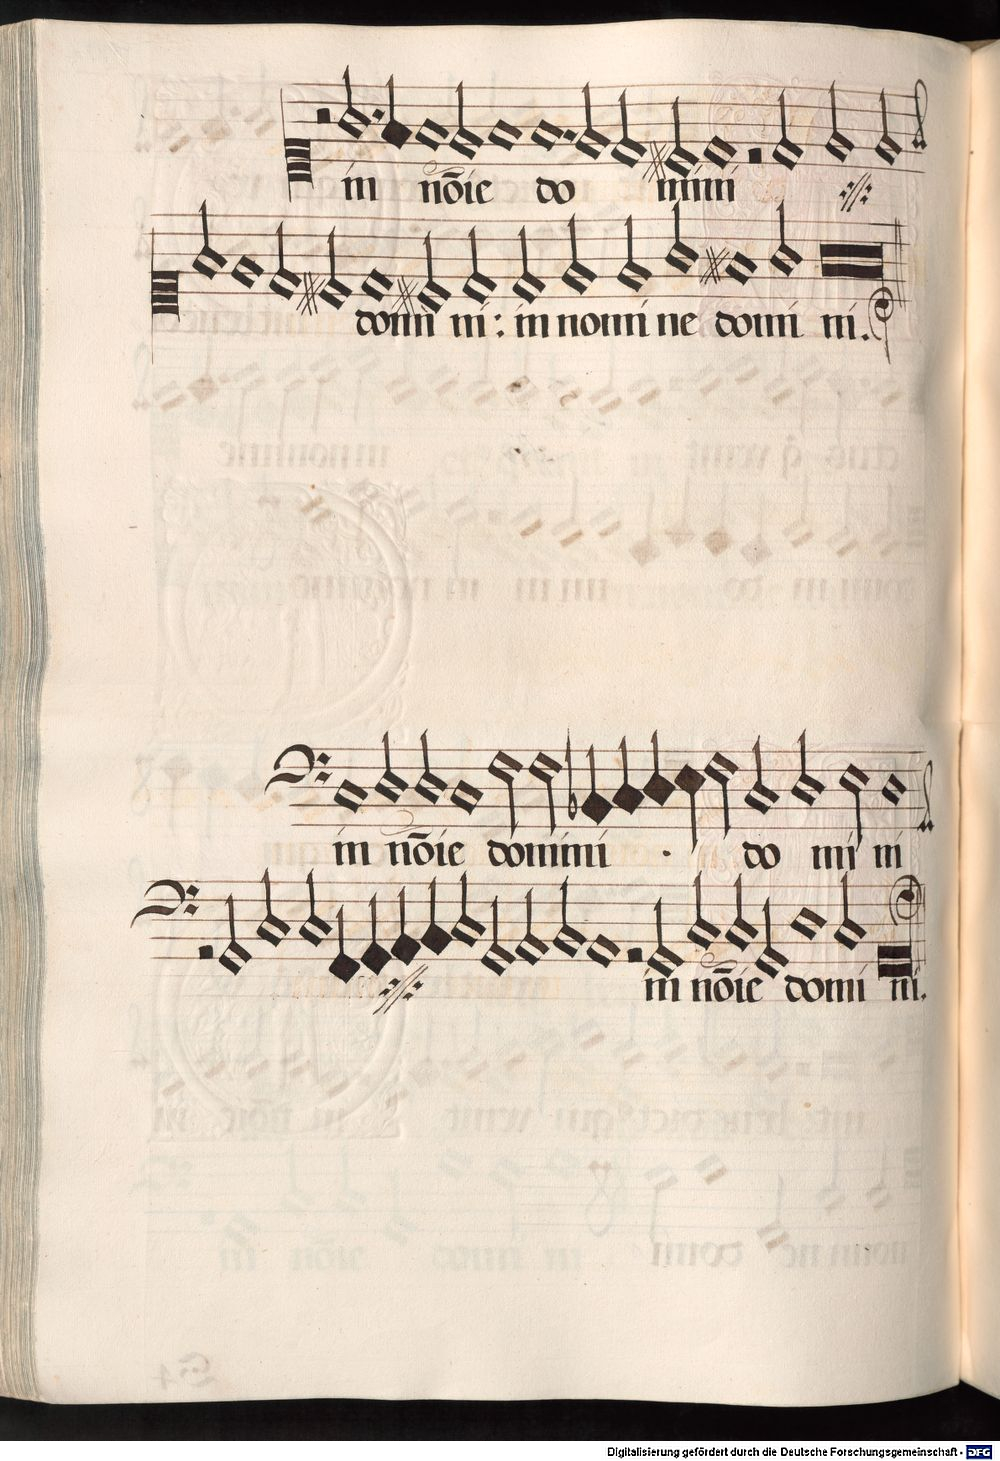 in nōie do mini
domi ni : in nomi ne domi ni.
in nōie domini · do mi ni
in nōie domi ni.
Digitalisierung gefördert durch die Deutsche Forschungsgemeinschaft - DFG